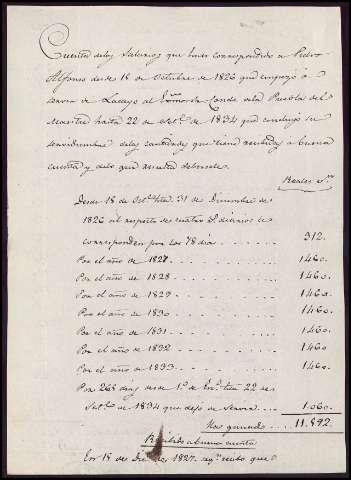 Cuenta delos Salarios que han correspondido a Pedro
Alfonso desde 18 de Octubre de 1826 que empezó a
servir de Lacayo al Exmo. Sr. Conde dela Puebla del
Maestre hasta 22 de Set.e de 1834 que concluyó su
servidumbre delas cantidades que tiene recibidas a buena
cuenta y delo que resulta debersele.
Reales v.n
Desde 18 de Oct.e hta. 31 de Diciembre de
1826 al respeto de cuatro r.s diarios le
corresponden por los 78 dias . . . . . . . 312.
Por el año de 1827 . . . . . . . 1460.
Por el año de 1828 . . . . . . . 1460.
Por el año de 1829 . . . . . . . 1460.
Por el año de 1830 . . . . . . . 1460.
Por el año de 1831 . . . . . . . 1460.
Por el año de 1832 . . . . . . . 1460
Por el año de 1833 . . . . . . . 1460.
Por 265 dias desde 1.o de En.o hta. 22 de
Set.e de 1834 que dejo de servir . . . 1.060.
Ha ganado . . . . 11.592.
Recibido a buena cuenta
En 18 de Dic.e de 1827. seg.n recibo que